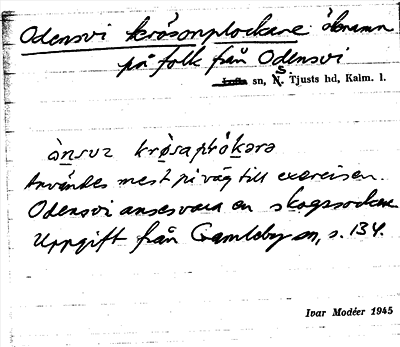 Odensvi krösonplockare öknamn
på folk från Odensvi
sn, S. Tjusts hd, Kalm. l.
Användes mest på väg till exercisen.
Odensvi anses vara en skogssocken
Uppgift från Gamleby sn, s. 134.
Ivar Modéer 1945